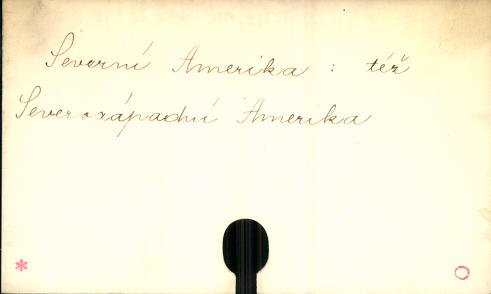 Severní Amerika : též
Severozápadní Amerika